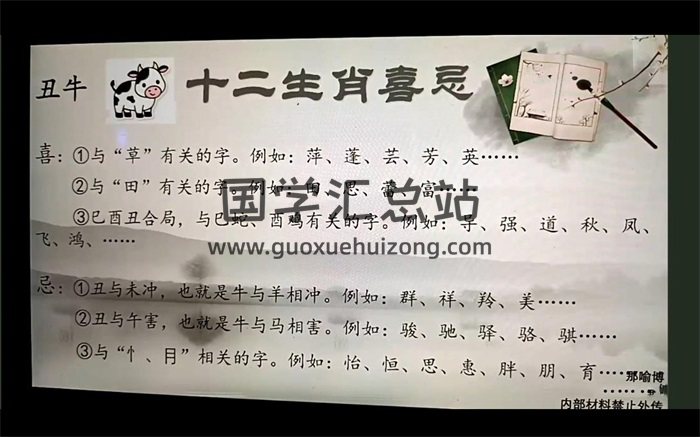 丑牛
十二生肖喜忌
喜：①与“草”有关的字。例如：萍、蓬、芸、芳、英……
②与“田”有关的字。例如：国、思、蕾、富……
③巳酉丑合局，与巳蛇、酉鸡有关的字。例如：导、强、道、秋、凤、
飞、鸿、……
国学汇总站
www.guoxuehuizong.com
忌：①丑与未冲，也就是牛与羊相冲。例如：群、祥、羚、美……
②丑与午害，也就是牛与马相害。例如：骏、驰、驿、骆、骐……
③与“忄、月”相关的字。例如：怡、恒、思、惠、胖、朋、育……
那喻博
内部材料禁止外传